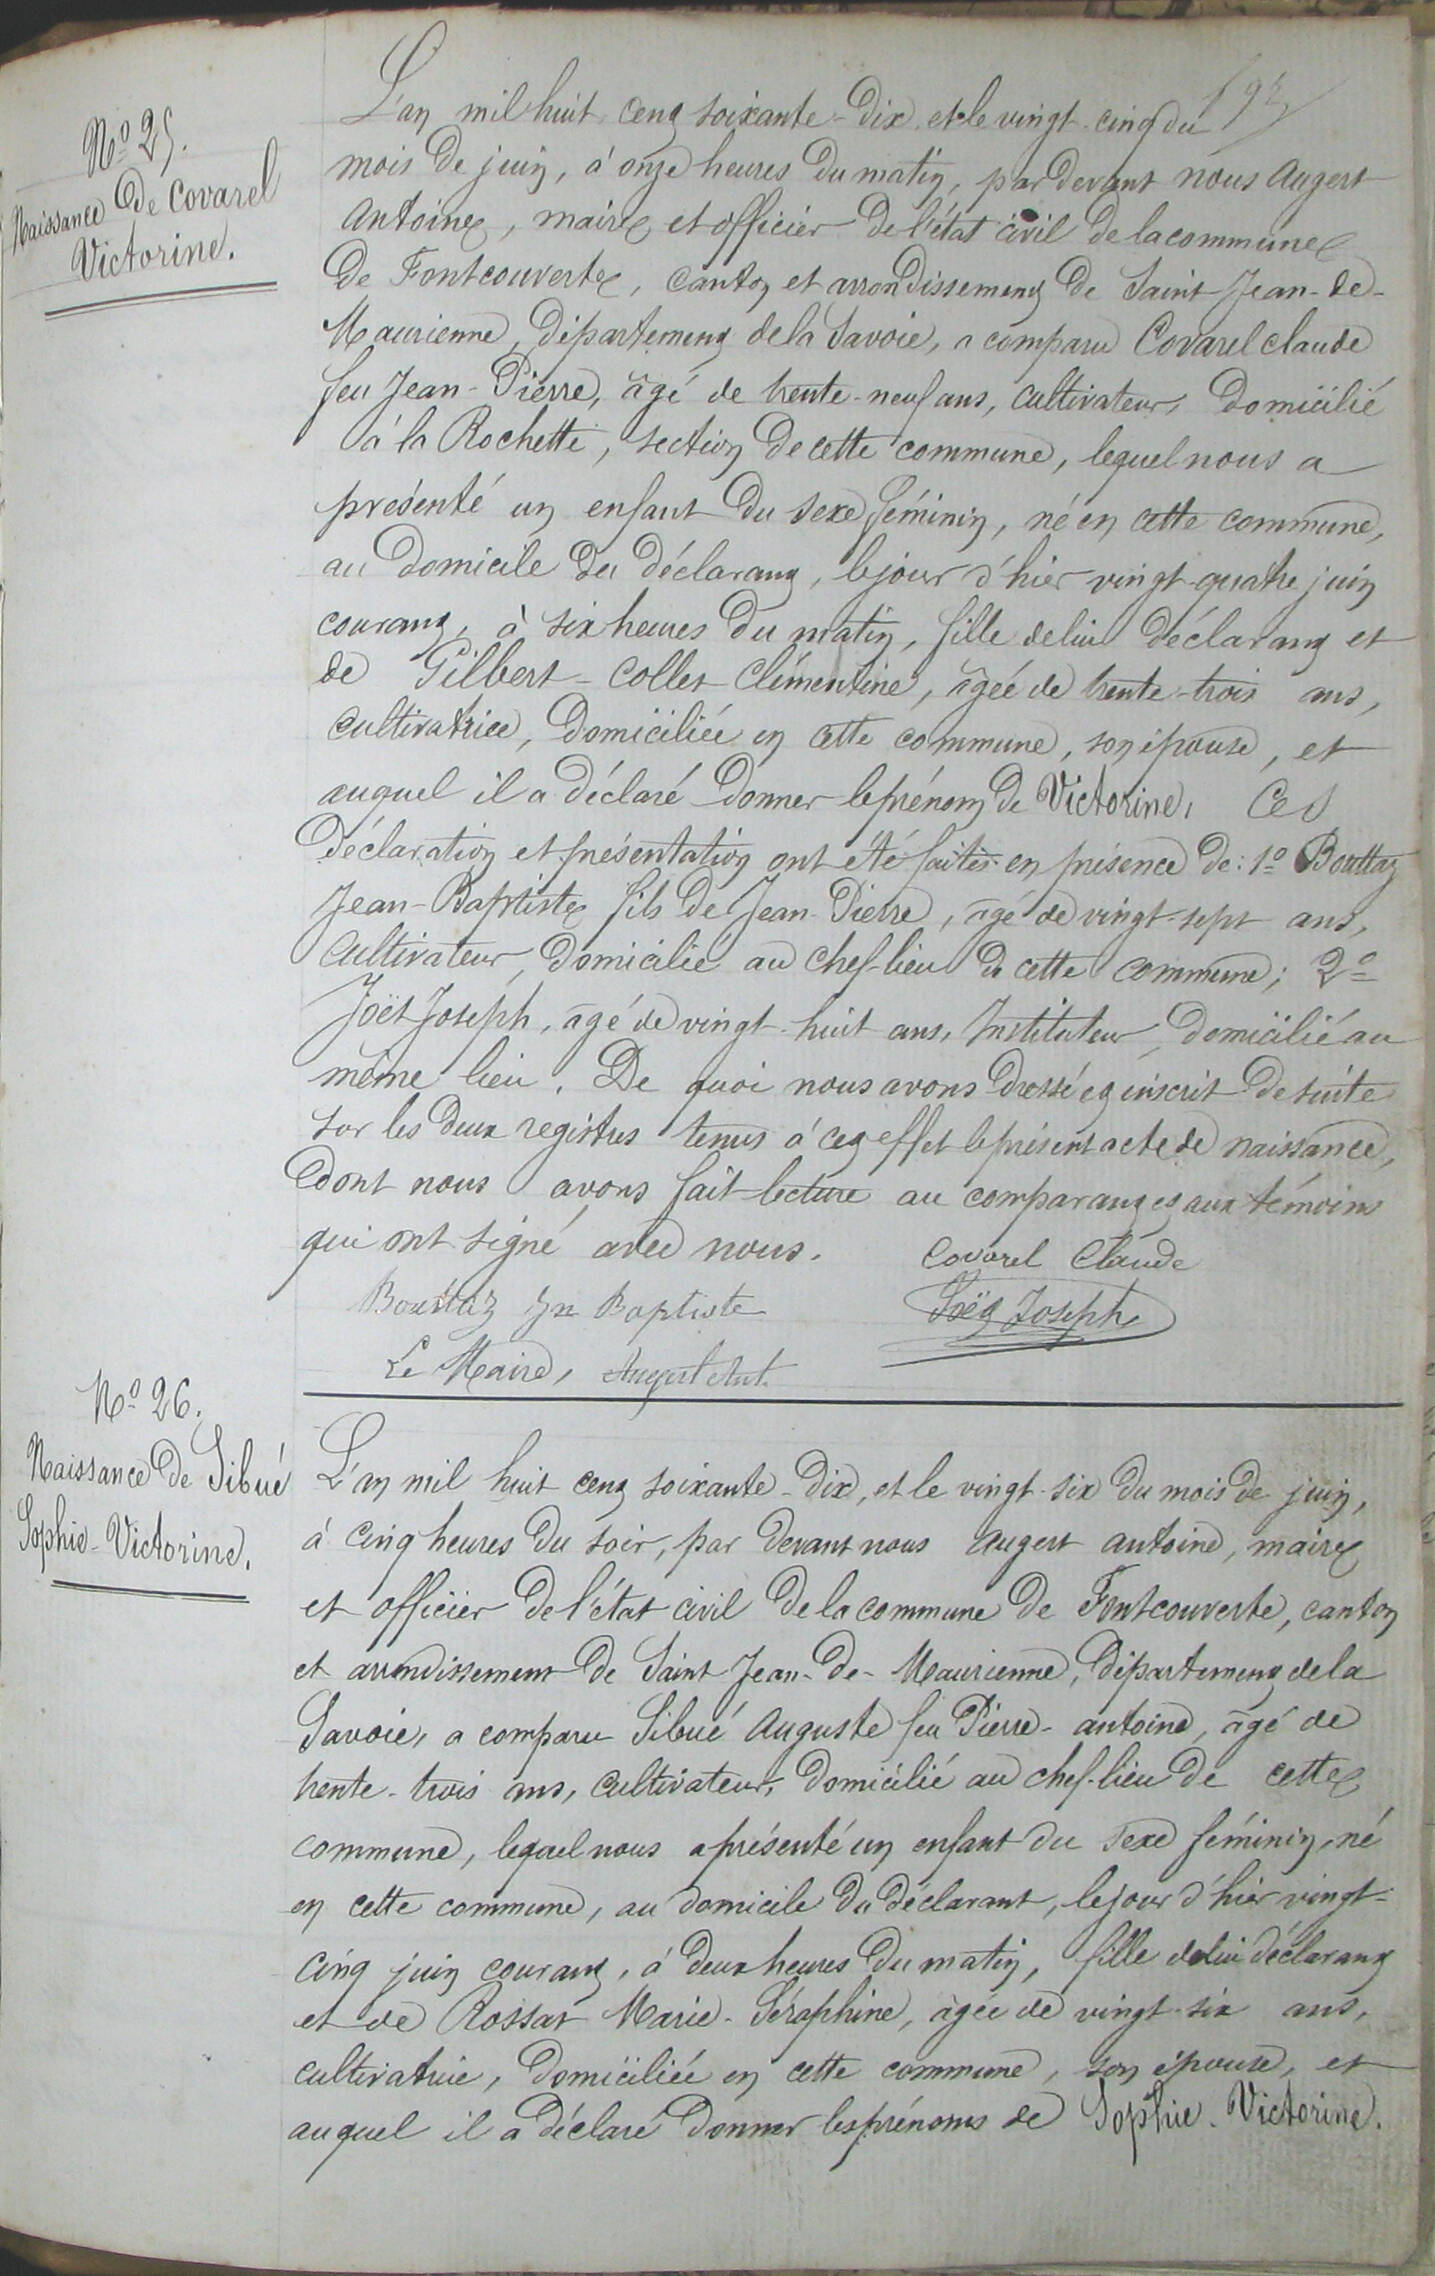 N° 25.
Naissance de Covarel
Victorine.
L'an mil huit cent soixante-dix, et le vingt-cinq du
mois de juin, à onze heures du matin, par devant nous Augert
Antoine, maire et officier de l'état civil de la commune
de Fontcouverte, canton et arrondissement de Saint-Jean-de-
Maurienne, département de la Savoie, a comparu Covarel Claude
feu Jean-Pierre, âgé de trente-neuf ans, cultivateur, domicilié
à la Rochette, section de cette commune, lequel nous a
présenté un enfant du sexe féminin, né en cette commune,
au domicile du déclarant, le jour d'hier vingt-quatre juin
courant, à six heures du matin, fille de lui déclarant et
de Gilbert-Collet Clémentine, âgée de trente-trois ans,
cultivatrice, domiciliée en cette commune, son épouse, et
auquel il a déclaré donner le prénom de Victorine. Ces
déclaration et présentation ont été faites en présence de: 1° Bouttaz
Jean-Baptiste fils de Jean-Pierre, âgé de vingt-sept ans,
cultivateur, domicilié au chef-lieu de cette commune; 2°
Joët Joseph, âgé de vingt-huit ans, Instituteur, domicilié au
même lieu. De quoi nous avons dressé et inscrit de suite
sur les deux registres tenus à cet effet le présent acte de naissance,
dont nous avons fait lecture au comparant et aux témoins
qui ont signé avec nous.
Covarel Claude
Bouttaz Jn Baptiste
Joët Joseph
Le Maire, Augert Ant.
N° 26.
Naissance de Sibué
Sophie-Victorine.
L'an mil huit cent soixante-dix, et le vingt-six du mois de juin,
à cinq heures du soir, par devant nous Augert Antoine, maire
et officier de l'état civil de la commune de Fontcouverte, canton
et arrondissement de Saint-Jean-de-Maurienne, département de la
Savoie, a comparu Sibué Auguste feu Pierre-Antoine, âgé de
trente-trois ans, cultivateur, domicilié au chef-lieu de cette
commune, lequel nous a présenté un enfant du sexe féminin, né
en cette commune, au domicile du déclarant, le jour d'hier vingt-
cinq juin courant, à deux heures du matin, fille de lui déclarant
et de Rossat Marie-Séraphine, âgée de vingt-six ans,
cultivatrice, domiciliée en cette commune, son épouse, et
auquel il a déclaré donner les prénoms de Sophie-Victorine.